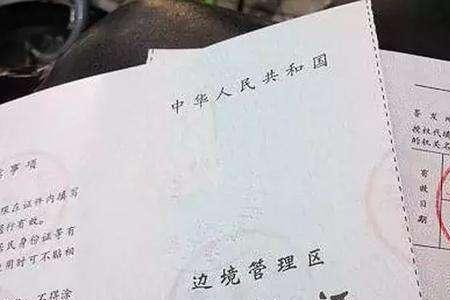 中华人民共和国
边境管理区
事项
限在证件内填写
居民身份证等有
用时可不贴相
不得涂
签发
授权代填
的机关名
有效日期